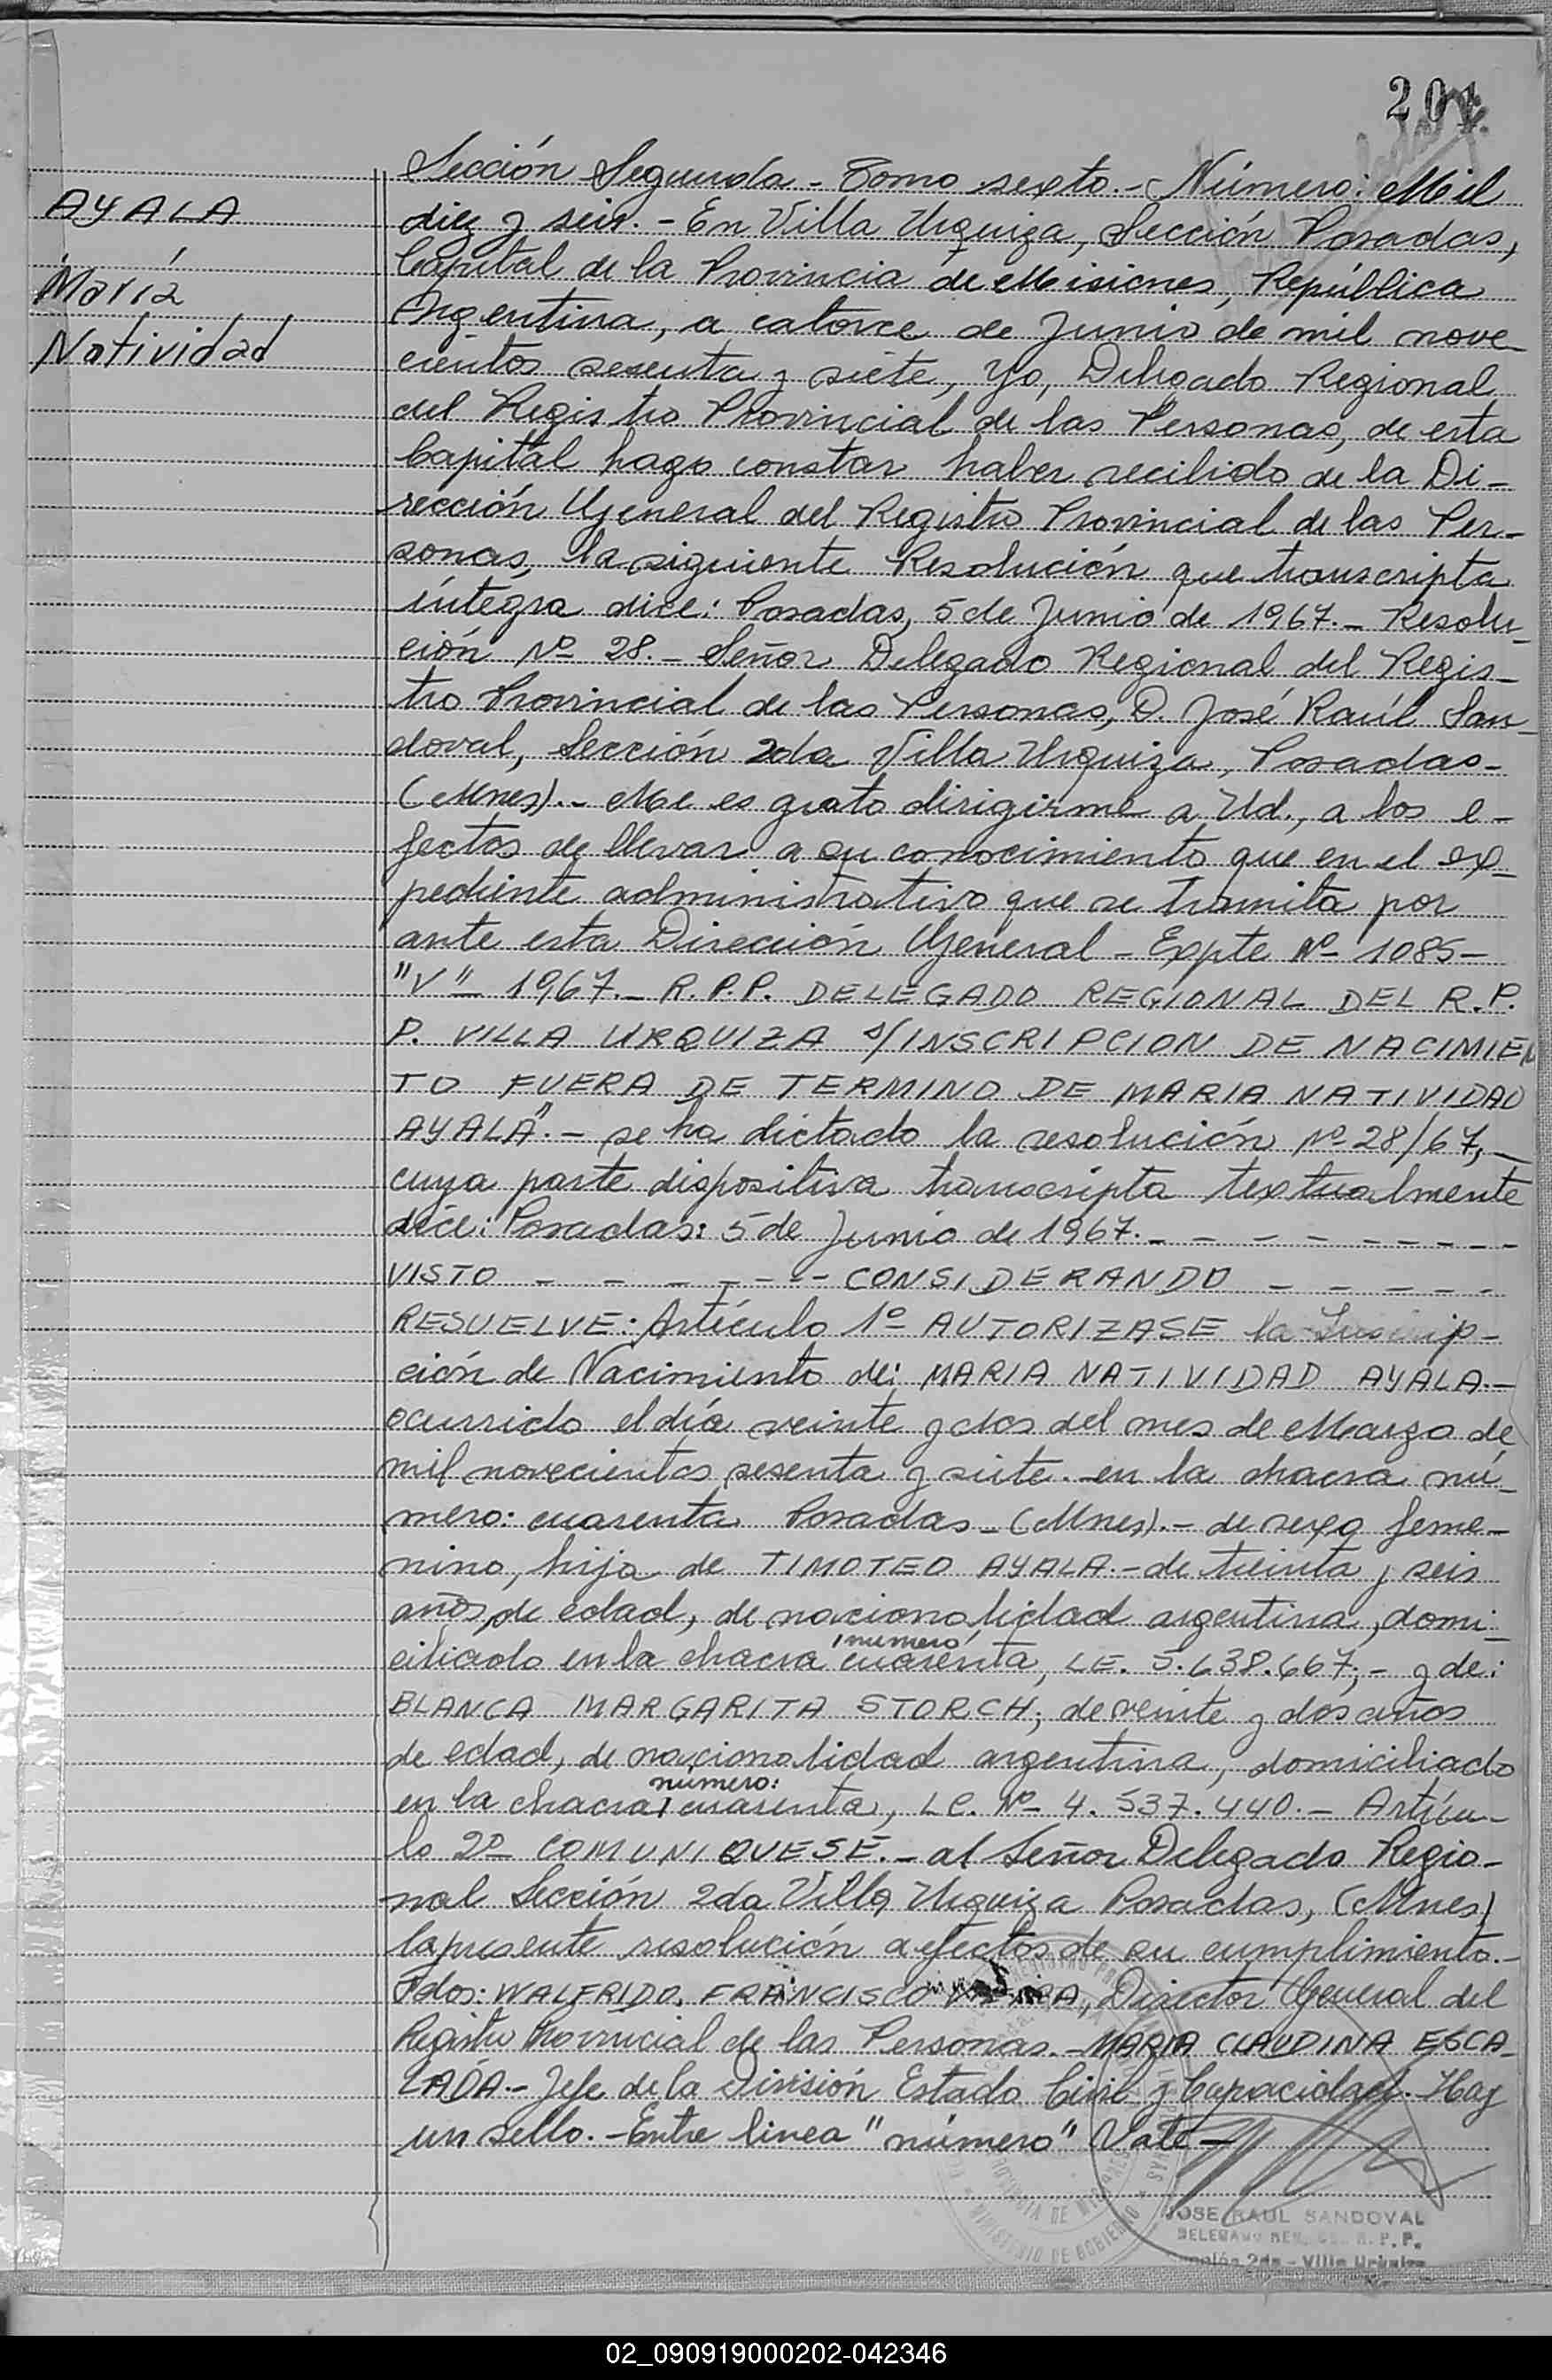 201
AYALA
María
Natividad
Sección Segunda - Tomo sexto.- Número: Mil
diez y seis.- En Villa Urquiza, Sección Posadas,
Capital de la Provincia de Misiones, República
Argentina, a catorce de Junio de mil nove-
cientos sesenta y siete, Yo, Delegado Regional
del Registro Provincial de las Personas, de esta
Capital hago constar haber recibido de la Di-
rección General del Registro Provincial de las Per-
sonas, la siguiente Resolución que transcripta
íntegra dice: Posadas, 5 de Junio de 1967.- Resolu-
ción Nº 28.- Señor Delegado Regional del Regis-
tro Provincial de las Personas, D. José Raúl San-
doval, Sección 2da Villa Urquiza, Posadas-
(Mnes).- Me es grato dirigirme a Ud., a los e-
fectos de llevar a su conocimiento que en el ex-
pediente administrativo que se tramita por
ante esta Dirección General - Expte Nº 1085-
"V" 1967.- R.P.P. DELEGADO REGIONAL DEL R.P.
P. VILLA URQUIZA s/INSCRIPCION DE NACIMIEN
TO FUERA DE TERMINO DE MARIA NATIVIDAD
AYALA".- se ha dictado la resolución Nº 28/67,-
cuya parte dispositiva transcripta textualmente
dice: Posadas: 5 de Junio de 1967.- - - - - - - -
VISTO - - - - - - - CONSIDERANDO - - - - -
RESUELVE: Artículo 1º AUTORIZASE la Inscrip-
ción de Nacimiento de: MARIA NATIVIDAD AYALA.-
ocurrido el día veinte y dos del mes de Marzo de
mil novecientos sesenta y siete.- en la chacra nú-
mero: cuarenta Posadas-(Mnes).- de sexo feme-
nino, hija de TIMOTEO AYALA.- de treinta y seis
años, de edad, de nacionalidad argentina, domi-
número
ciliado en la chacra cuarenta, LE. 5.638.667;- y de:
BLANCA MARGARITA STORCH; de veinte y dos años
de edad, de nacionalidad argentina, domiciliado
número:
en la chacra cuarenta, LC. Nº 4.537.440.- Artícu-
lo 2º COMUNIQUESE.- al Señor Delegado Regio-
nal Sección 2da Villa Urquiza Posadas, (Mnes)
la presente resolución a efectos de su cumplimiento.-
Fdos: WALFRIDO, FRANCISCO Director General del
Registro Provincial de las Personas.- MARIA CLAUDINA ESCA-
LADA.- Jefe de la División Estado Civil y Capacidad. Hay
un sello.- Entre linea "número" Vale-
JOSE RAUL SANDOVAL
DELEGADO REG. R.P.P.
Sección 2da - Villa Urquiza
02_090919000202-042346